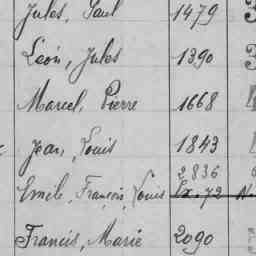 Jules, Paul 1479
Léon, Jules 1390
Marcel, Pierre 1668
Jean, Louis 1843
2836
Emile, François, Louis Ex. 72
Francis, Marie 2090